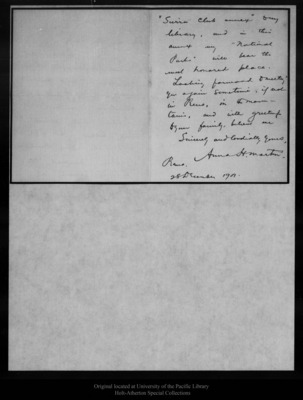 "Sierra Club annex" to my
library, and in this
annex my "National
Parks" will bear the
most honored place.
Looking forward to meeting
you again sometime, if not
in Reno, in the moun-
tains, and with greetings
to your family, believe me
Sincerely and cordially yours,
Anne H. Martin.
Reno,
28 December 1901.
Original located at University of the Pacific Library
Holt-Atherton Special Collections